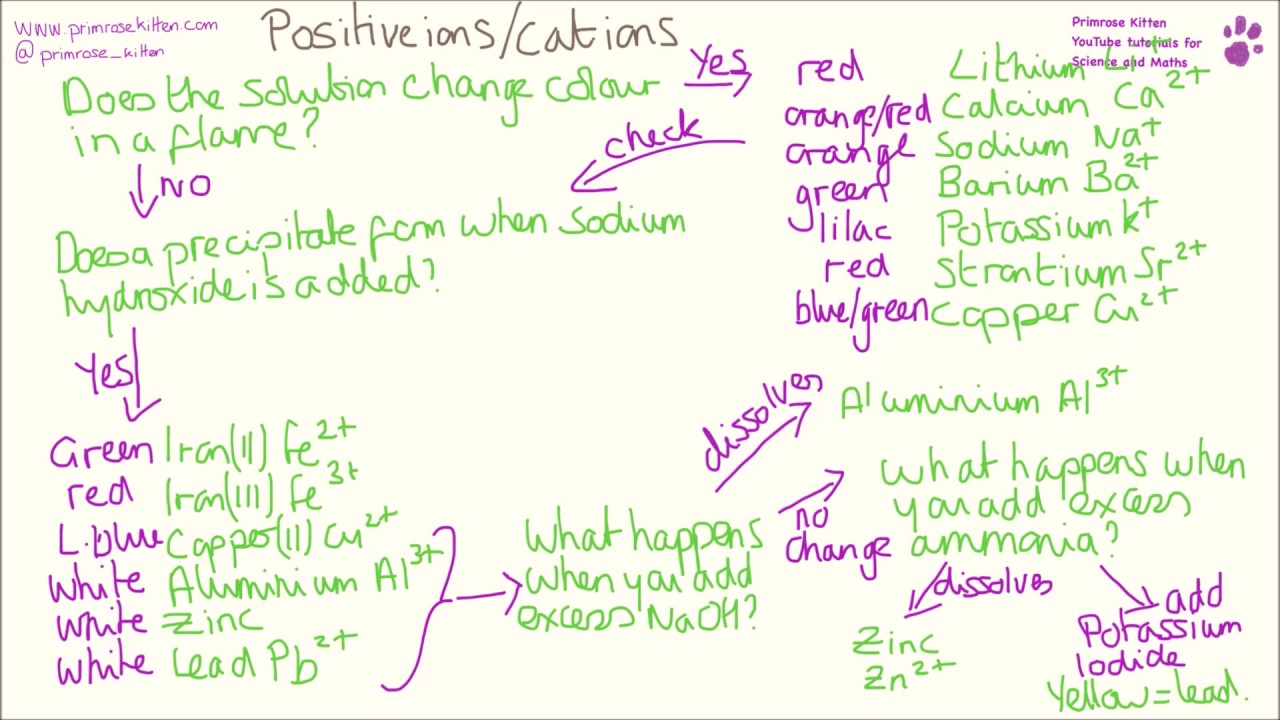 www.primrosekitten.com
@primrose_kitten
Positive ions/cations
Primrose Kitten
YouTube tutorials for
Science and Maths
Does the solution change colour
in a flame?
Yes
check
NO
red Lithium Li+
orange/red Calcium Ca2+
orange Sodium Na+
green Barium Ba2+
lilac Potassium K+
red Strontium Sr2+
blue/green Copper Cu2+
Does a precipitate form when sodium
hydroxide is added?
Yes
Green Iron(II) Fe2+
red Iron(III) Fe3+
L.blue Copper(II) Cu2+
white Aluminium Al3+
white Zinc
white Lead Pb2+
What happens
when you add
excess NaOH?
dissolves
Aluminium Al3+
no
change
what happens when
you add excess
ammonia?
dissolves
Zinc
Zn2+
add
Potassium
Iodide
Yellow = lead.